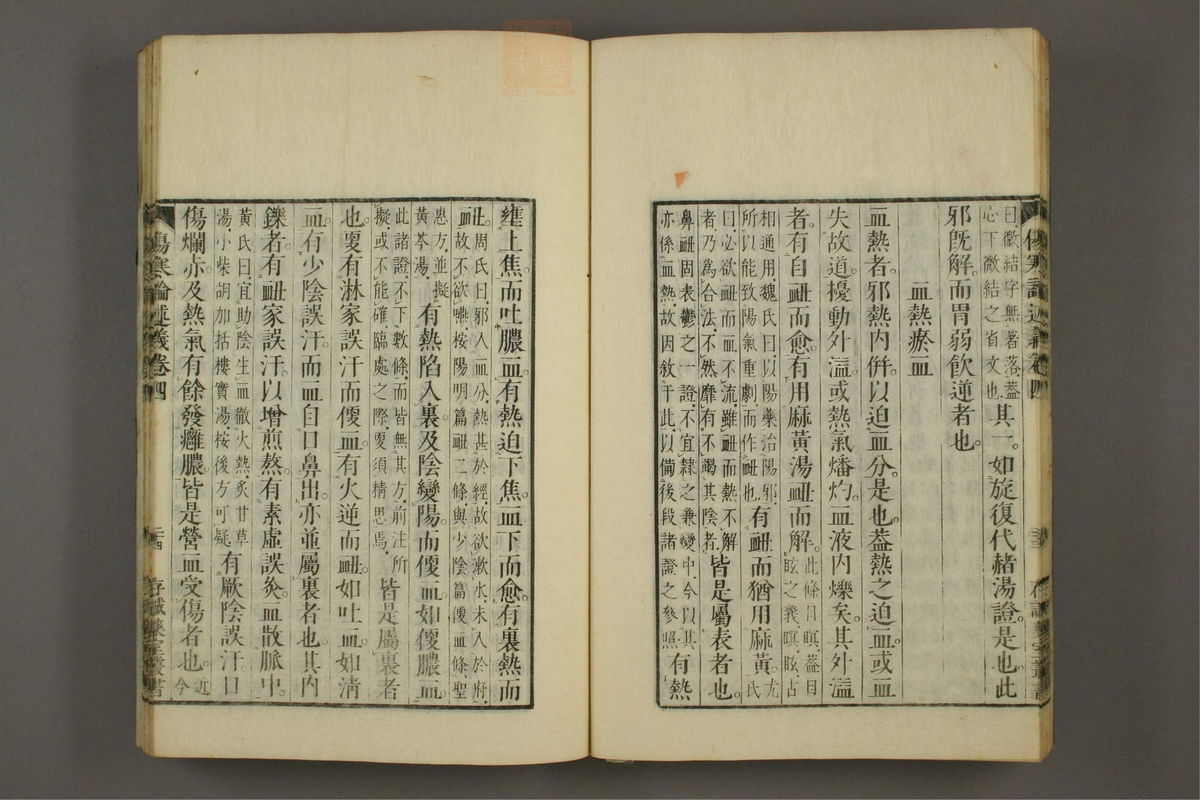 曰微結字無著落蓋
心下微結之省文也其一如旋復代赭湯證是也此
邪既解而胃弱飲逆者也
血熱瘀血
血熱者邪熱內併以迫血分是也蓋熱之迫血或血
失故道擾動外溢或熱氣燔灼血液內爍矣其外溢
者有自衄而愈有用麻黃湯衄而解此條目瞑蓋目
眩之義瞑眩古
相通用魏氏曰以陽藥治陽邪
所以能致陽氣重劇而作衄也有衄而猶用麻黃尤
氏
曰必欲衄而血不流雖衄而熱不解
者乃為合法不然靡有不竭其陰者皆是屬表者也
鼻衄固表鬱之一證不宜隸之兼變中今以其
亦係血熱故因敘于此以備後段諸證之參照有熱
壅上焦而吐膿血有熱迫下焦血下而愈有裏熱而
衄周氏曰邪入血分熱甚於經故欲漱水未入於府
故不欲嚥按陽明篇衄二條與少陰篇便血條聖
惠方並擬
黃芩湯有熱陷入裏及陰變陽而便血如便膿血
此諸證不下數條而皆無其方前注所
擬或不能確臨處之際更須精思焉皆是屬裏者
也更有淋家誤汗而便血有火逆而衄如吐血如清
血有少陰誤汗而血自口鼻出亦並屬裏者也其內
鑠者有衄家誤汗以增煎熬有素虛誤灸血散脈中
黃氏曰宜助陰生血徹火熱炙甘草
湯小柴胡加括樓實湯按後方可疑有厥陰誤汗口
傷爛赤及熱氣有餘發癰膿皆是營血受傷者也近
今
傷寒論述義卷四
二十四
存誠藥室叢書